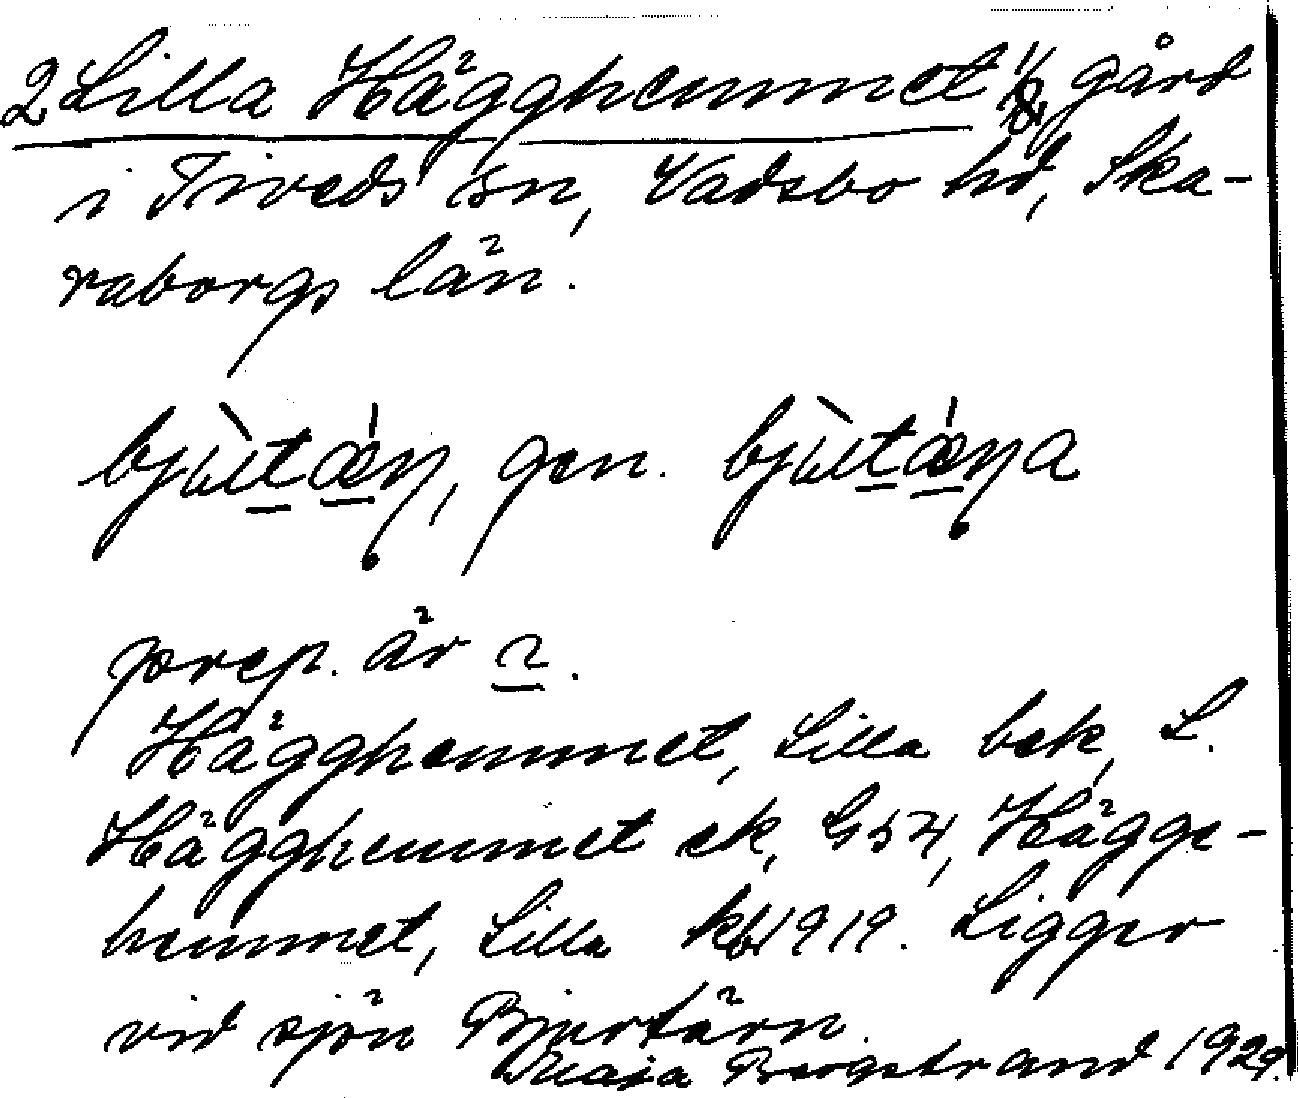 2 Lilla Hägghemmet 1/8 gård
i Tiveds sn, Vadsbo hd, Ska-
raborgs län.
gen.
prep. är
Hägghemmet, Lilla bek, L.
Hägghemmet ek, G54, Hägge-
hemmet, Lilla kb 1919. Ligger
vid sjön Bjurtärn.
Maja Bergstrand 1929.